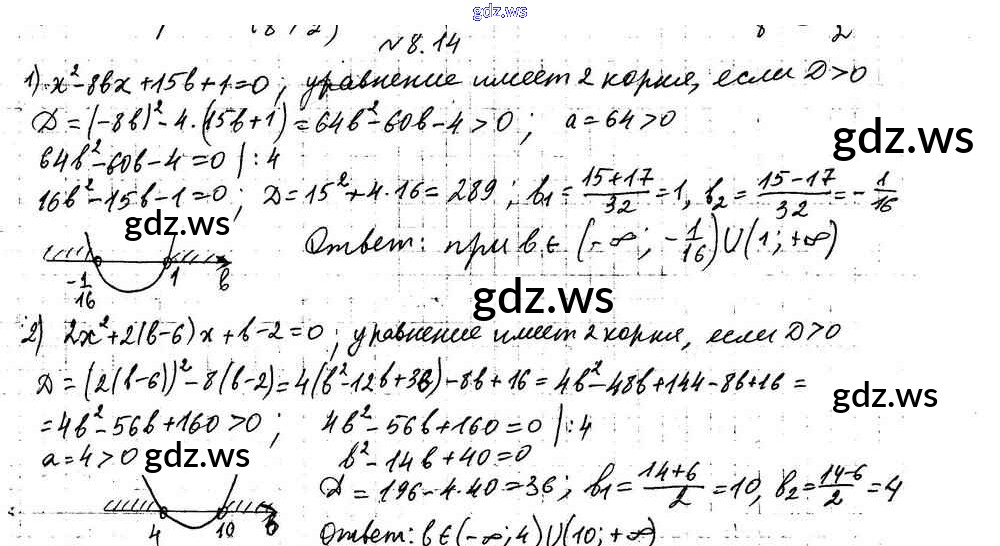 gdz.ws
№8.14
1) x²-8bx+15b+1=0; уравнение имеет 2 корня, если D>0
D=(-8b)²-4·(15b+1)=64b²-60b-4>0; a=64>0
gdz.ws
64b²-60b-4=0 |:4
16b²-15b-1=0; D=15²+4·16=289; b₁=(15+17)/32=1, b₂=(15-17)/32=-1/16
gdz.ws
Ответ: при b∈(-∞; -1/16)U(1;+∞)
-1/16 1 b
gdz.ws
2) 2x²+2(b-6)x+b-2=0; уравнение имеет 2 корня, если D>0
D=(2(b-6))²-8(b-2)=4(b²-12b+36)-8b+16=4b²-48b+144-8b+16=
gdz.ws
=4b²-56b+160>0; 4b²-56b+160=0 |:4
a=4>0 b²-14b+40=0
gdz.ws
D=196-4·40=36; b₁=(14+6)/2=10, b₂=(14-6)/2=4
4 10 b
Ответ: b∈(-∞;4)U(10;+∞)